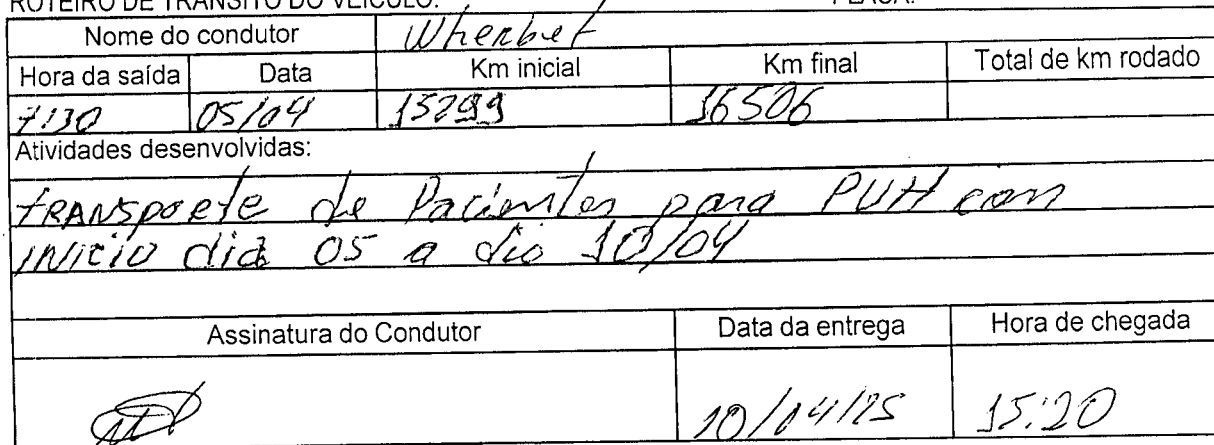 ROTEIRO DE TRÂNSITO DO VEÍCULO: PLACA:
Nome do condutor Wherbet
Hora da saída Data Km inicial Km final Total de km rodado
7:30 05/04 15299 16506
Atividades desenvolvidas:
tRANSpoRte de Pacientes para PVH com
INICIO dia 05 a dia 10/04
Assinatura do Condutor Data da entrega Hora de chegada
10/04/25 15:20